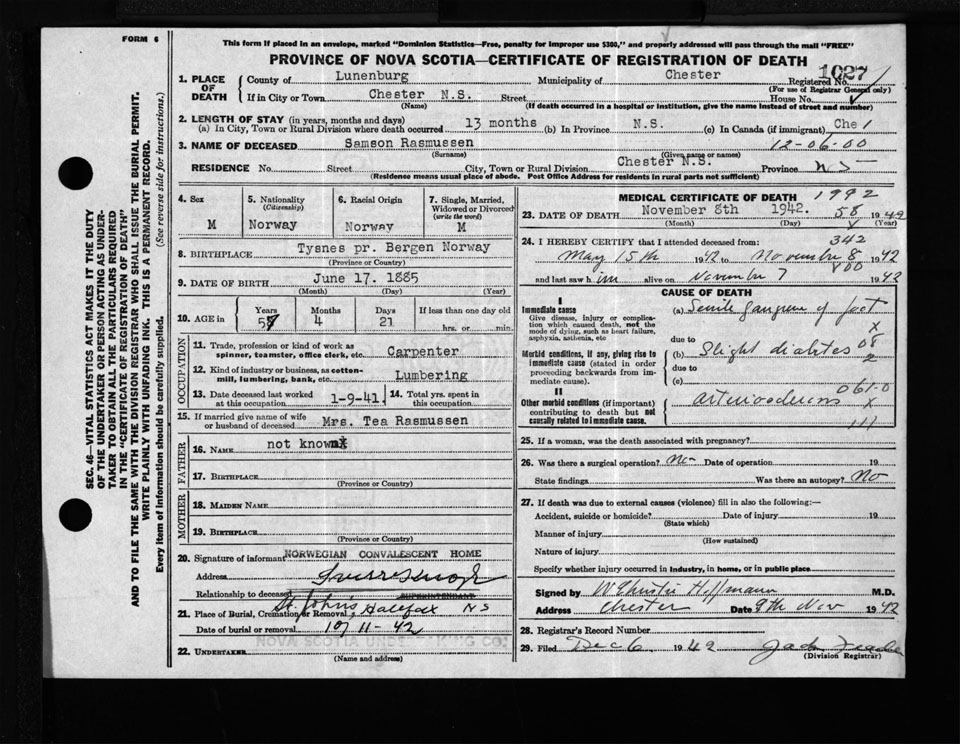 FORM 6
This form if placed in an envelope, marked "Dominion Statistics—Free, penalty for improper use $300," and properly addressed will pass through the mail "FREE"
PROVINCE OF NOVA SCOTIA—CERTIFICATE OF REGISTRATION OF DEATH
SEC. 46—VITAL STATISTICS ACT MAKES IT THE DUTY
OF THE UNDERTAKER OR PERSON ACTING AS UNDER-
TAKER TO OBTAIN ALL THE PARTICULARS REQUIRED
IN THE "CERTIFICATE OF REGISTRATION OF DEATH"
AND TO FILE THE SAME WITH THE DIVISION REGISTRAR WHO SHALL ISSUE THE BURIAL PERMIT.
WRITE PLAINLY WITH UNFADING INK. THIS IS A PERMANENT RECORD.
Every item of information should be carefully supplied. (See reverse side for instructions.)
1. PLACE OF DEATH County of Lunenburg Municipality of Chester Registered No. 1027
(For use of Registrar General only)
If in City or Town Chester N.S. Street House No.
(Name) (If death occurred in a hospital or institution, give the name instead of street and number)
2. LENGTH OF STAY (in years, months and days)
(a) In City, Town or Rural Division where death occurred 13 months (b) In Province N.S. (c) In Canada (if immigrant) Che 1
3. NAME OF DECEASED Samson Rasmussen 12-06-00
(Surname) (Given name or names)
RESIDENCE No. Street City, Town or Rural Division Chester N.S. Province NS
(Residence means usual place of abode. Post Office Address for residents in rural parts not sufficient)
4. Sex M
5. Nationality (Citizenship) Norway
6. Racial Origin Norway
7. Single, Married, Widowed or Divorced (write the word) M
8. BIRTHPLACE Tysnes pr. Bergen Norway
(Province or Country)
9. DATE OF BIRTH June 17. 1885
(Month) (Day) (Year)
10. AGE in Years Months 4 Days 21 If less than one day old hrs. or min.
OCCUPATION
11. Trade, profession or kind of work as spinner, teamster, office clerk, etc. Carpenter
12. Kind of industry or business, as cotton-mill, lumbering, bank, etc. Lumbering
13. Date deceased last worked at this occupation 1-9-41 14. Total yrs. spent in this occupation
15. If married give name of wife or husband of deceased Mrs. Tea Rasmussen
FATHER
16. NAME not known
17. BIRTHPLACE
(Province or Country)
MOTHER
18. MAIDEN NAME
19. BIRTHPLACE
(Province or Country)
20. Signature of informant NORWEGIAN CONVALESCENT HOME
Address
Relationship to deceased SUPERINTENDANT
21. Place of Burial, Cremation or Removal St. John's, Halifax NS
Date of burial or removal 11-42
NOVA SCOTIA UNDERTAKING CO.
22. UNDERTAKER
(Name and address)
MEDICAL CERTIFICATE OF DEATH 1992
23. DATE OF DEATH November 8th 1942. 58 1942
(Month) (Day) (Year)
24. I HEREBY CERTIFY that I attended deceased from: 342
May 15th 1942 to November 8 1942
800
and last saw him alive on November 7 1942
CAUSE OF DEATH
I
Immediate cause
Give disease, injury or complication which caused death, not the mode of dying, such as heart failure, asphyxia, asthenia, etc
(a) Senile gangrene of foot
due to
Morbid conditions, if any, giving rise to immediate cause (stated in order proceeding backwards from immediate cause).
(b) Slight diabetes
due to
(c)
II
Other morbid conditions (if important) contributing to death but not causally related to immediate cause.
061.0
111
25. If a woman, was the death associated with pregnancy?
26. Was there a surgical operation? no Date of operation 19
State findings Was there an autopsy? No
27. If death was due to external causes (violence) fill in also the following:—
Accident, suicide or homicide? Date of injury 19
(State which)
Manner of injury
(How sustained)
Nature of injury
Specify whether injury occurred in industry, in home, or in public place
Signed by M.D.
Address Chester Date 9th Nov 1942
28. Registrar's Record Number
29. Filed Dec 6 1942
(Division Registrar)